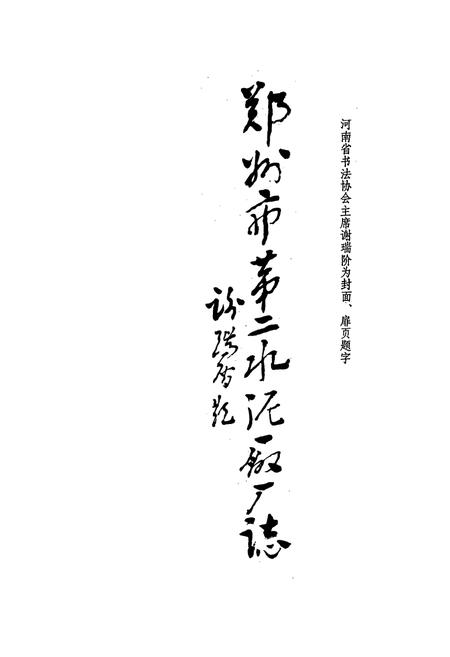 河南省书法协会主席谢瑞阶为封面、扉页题字
郑州市第二水泥厰厂誌
谢瑞阶题